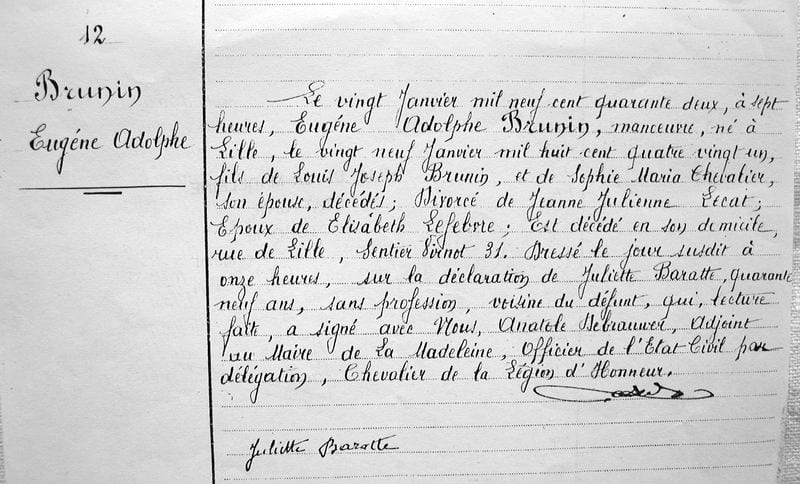 12
Brunin
Eugéne Adolphe
Le vingt Janvier mil neuf cent quarante deux, à sept
heures, Eugéne Adolphe Brunin, manœuvre, né à
Lille, le vingt neuf Janvier mil huit cent quatre vingt un,
fils de Louis Joseph Brunin, et de Sophie Maria Chevalier,
son épouse, décédés; Divorcé de Jeanne Julienne Lecat;
Epoux de Elisabeth Lefebvre; Est décédé en son domicile,
rue de Lille, Sentier 31. Dressé le jour susdit à
onze heures, sur la déclaration de Juliette Baratte, quarante
neuf ans, sans profession, voisine du défunt, qui, lecture
faite, a signé avec Nous, Anatole Debrauwer, Adjoint
au Maire de La Madeleine, Officier de l'Etat Civil par
délégation, Chevalier de la Légion d'Honneur.
Juliette Baratte